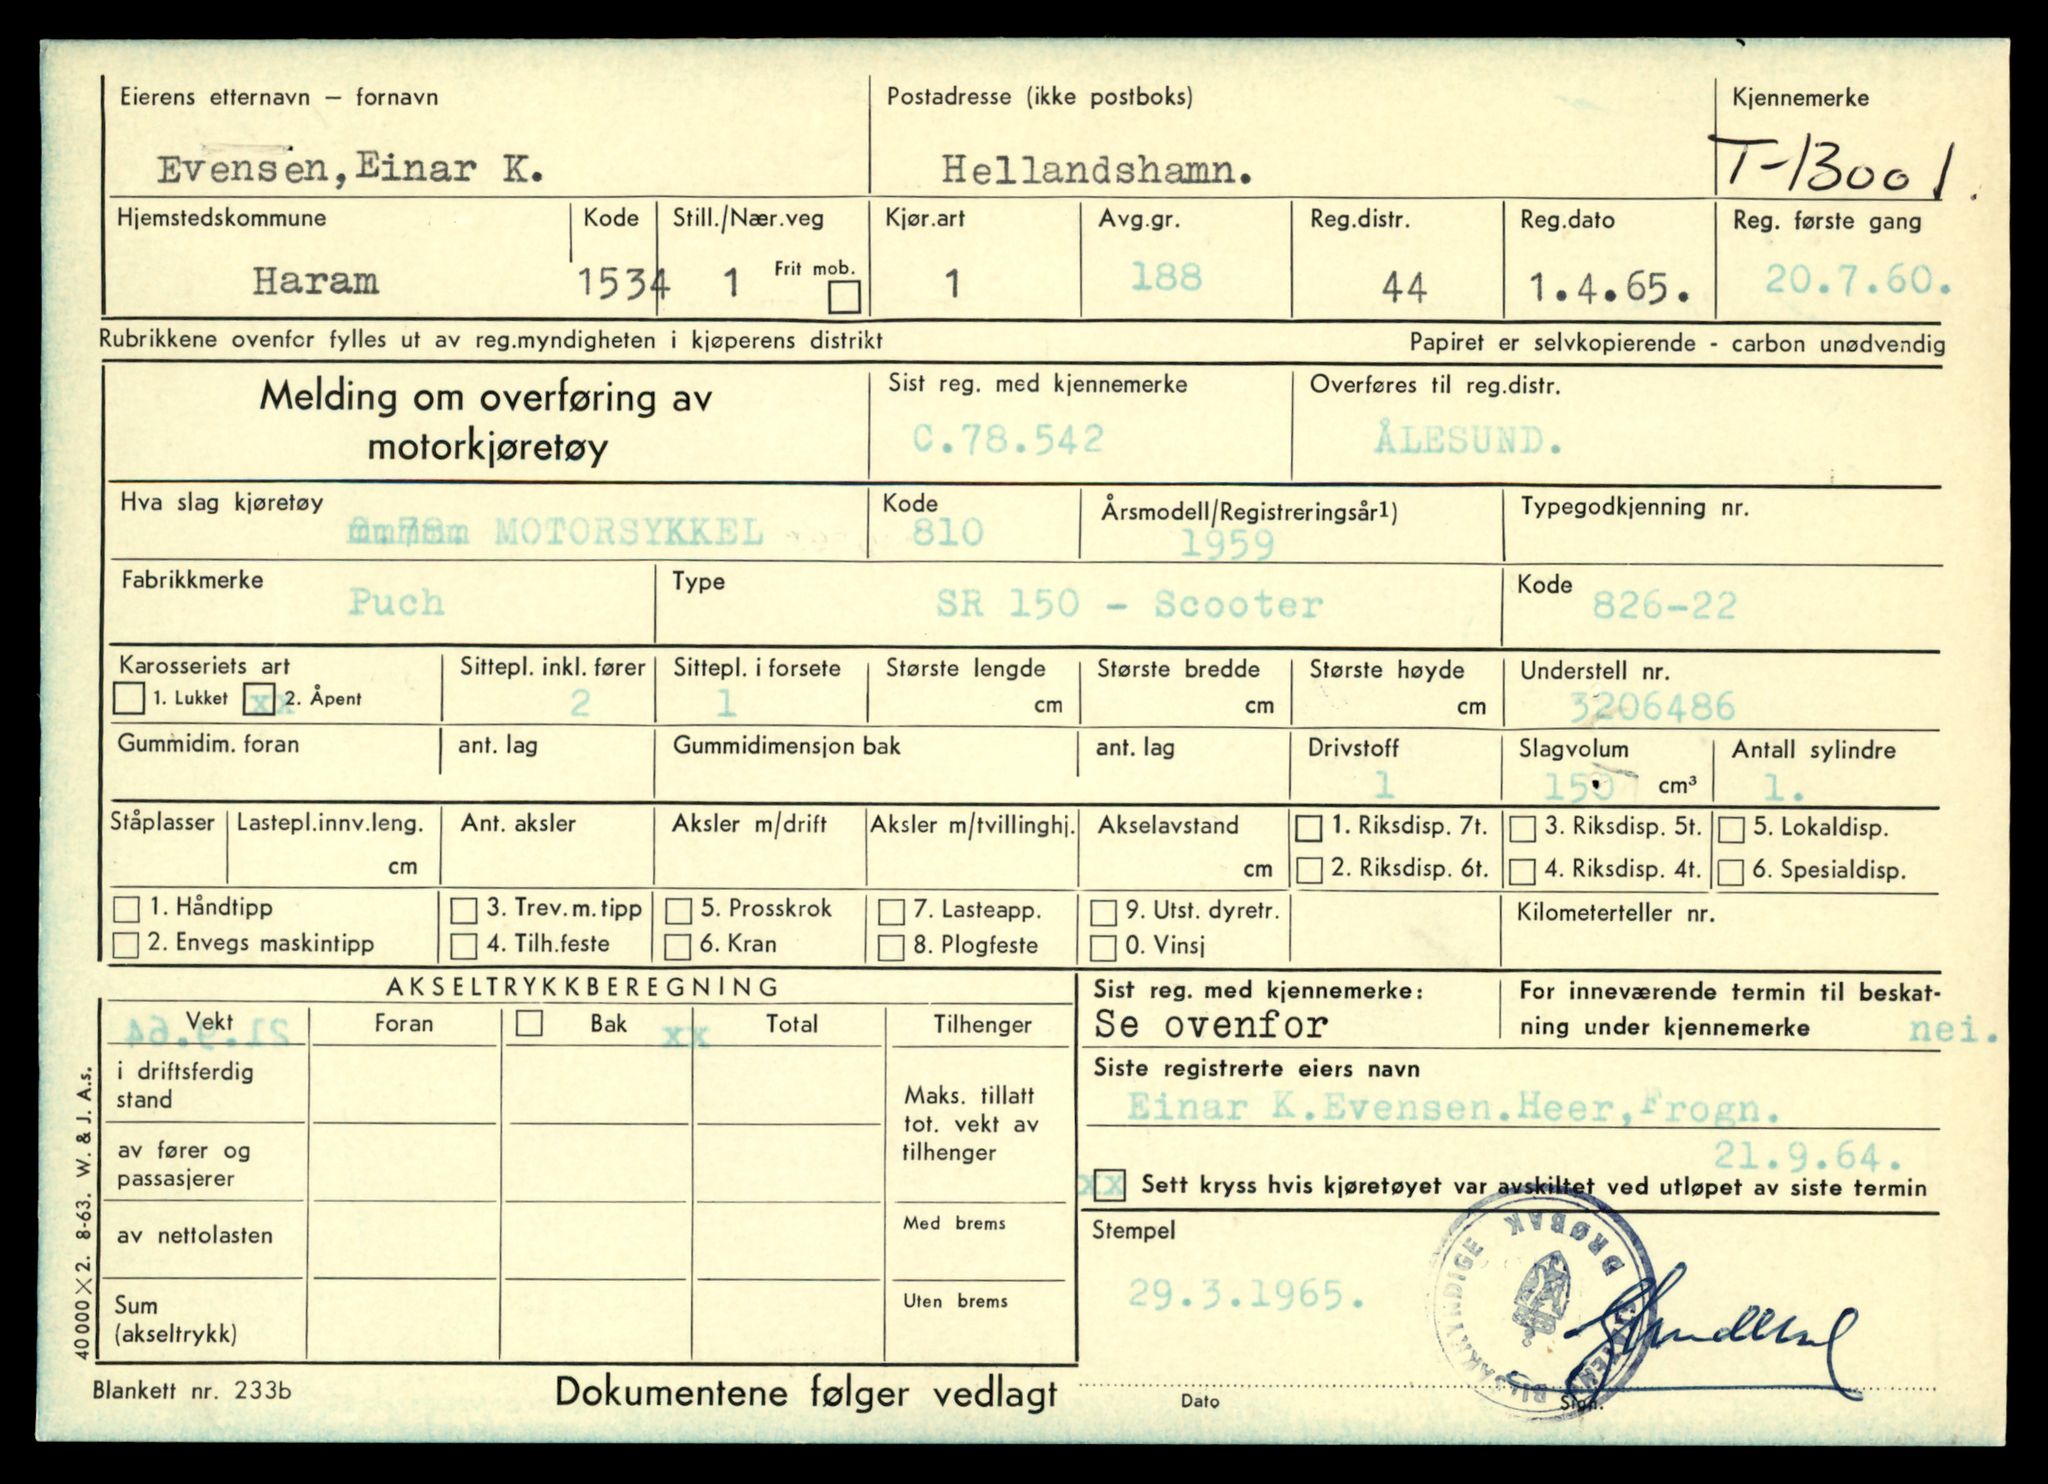 Eierens etternavn — fornavn Postadresse (ikke postboks) Kjennemerke
Evensen, Einar K. Hellandshamn. T-13001
Hjemstedskommune Kode Still./Nær.veg Kjør.art Avg.gr. Reg.distr. Reg.dato Reg. første gang
Frit mob.
Haram 1534 1 1 188 44 1.4.65. 20.7.60.
Rubrikkene ovenfor fylles ut av reg.myndigheten i kjøperens distrikt Papiret er selvkopierende - carbon unødvendig
Melding om overføring av Sist reg. med kjennemerke Overføres til reg.distr.
motorkjøretøy C.78.542 ÅLESUND.
Hva slag kjøretøy Kode Årsmodell/Registreringsår1) Typegodkjenning nr.
MOTORSYKKEL 810 1959
Fabrikkmerke Type Kode
Puch SR 150 - Scooter 826-22
Karosseriets art Sittepl. inkl. fører Sittepl. i forsete Største lengde Største bredde Største høyde Understell nr.
1. Lukket xx 2. Åpent 2 1 cm cm cm 3206486
Gummidim. foran ant. lag Gummidimensjon bak ant. lag Drivstoff Slagvolum Antall sylindre
1 150 cm³ 1.
Ståplasser Lastepl.innv.leng. Ant. aksler Aksler m/drift Aksler m/tvillinghj. Akselavstand 1. Riksdisp. 7t. 3. Riksdisp. 5t. 5. Lokaldisp.
cm cm 2. Riksdisp. 6t. 4. Riksdisp. 4t. 6. Spesialdisp.
1. Håndtipp 3. Trev.m.tipp 5. Prosskrok 7. Lasteapp. 9. Utst. dyretr. Kilometerteller nr.
2. Envegs maskintipp 4. Tilh.feste 6. Kran 8. Plogfeste 0. Vinsj
AKSELTRYKKBEREGNING Sist reg. med kjennemerke: For inneværende termin til beskat-
Vekt Foran Bak Total Tilhenger Se ovenfor ning under kjennemerke nei.
21.9.64 xx
i driftsferdig Siste registrerte eiers navn
stand Maks. tillatt Einar K.Evensen.Heer,Frogn.
tot. vekt av
av fører og tilhenger 21.9.64.
passasjerer xx Sett kryss hvis kjøretøyet var avskiltet ved utløpet av siste termin
av nettolasten Med brems Stempel
BILSAKKYNDIGE DRØBAK
Sum Uten brems 29.3.1965.
(akseltrykk)
40000 X 2. 8-63. W. & J. A.s.
Blankett nr. 233b Dokumentene følger vedlagt Dato Sign.